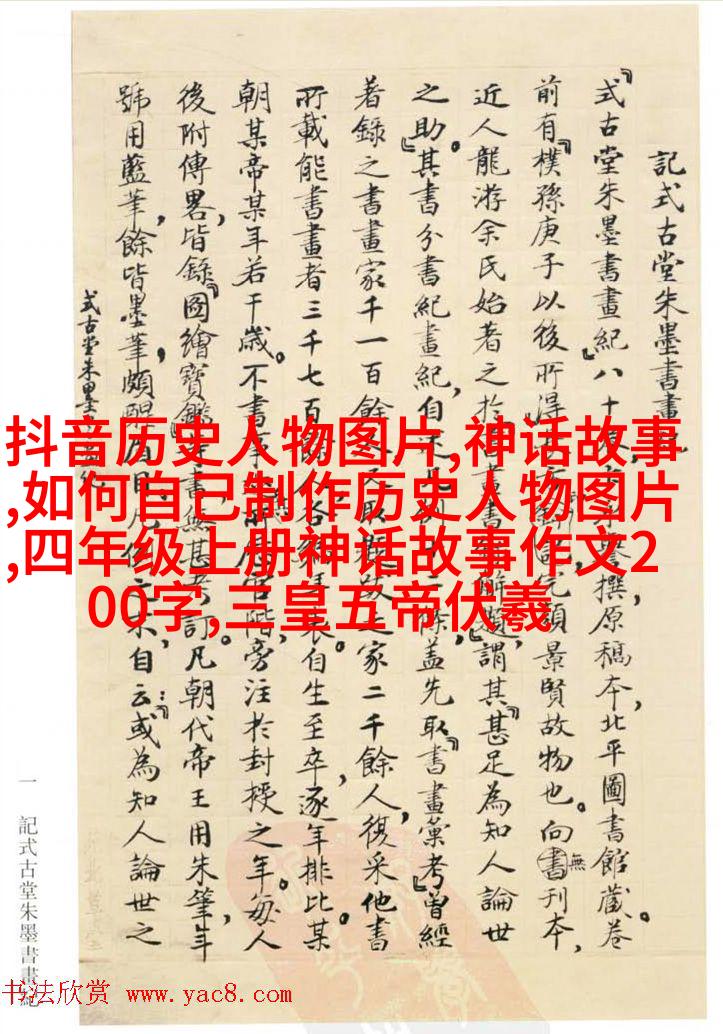 記式古堂朱墨書畫紀
『式古堂朱墨書畫紀』八十 撰原稿本，北平圖書館藏。卷
前有『樸孫庚子以後所得 景賢故物也。向無刊本，
近人龍游余氏始著之於『書畫書 解題』，謂其『甚足為知人論世
之助』。其書分書紀畫紀，自 除，蓋先取『書畫彙考』曾經
著錄之書畫家千一百餘 家二千餘人，復采他書
所載能書畫者三千七百 人，各 表，自生至卒，逐年排比，某
朝某帝某年若干歲。不書事 官階，旁注於封授之年。每人
後附傳畧，皆錄『圖繪寶鑑』等書，無甚考訂。凡朝代帝王用朱筆，年
號用藍筆，餘皆墨筆，頗醒 自云：或為知人論世之
式古堂朱墨書 紀
一 記式古堂朱墨書畫紀
抖音历史人物图片,神话故事
,如何自己制作历史人物图片
,四年级上册神话故事作文2
00字,三皇五帝伏羲
书法欣赏 www.yac8.com